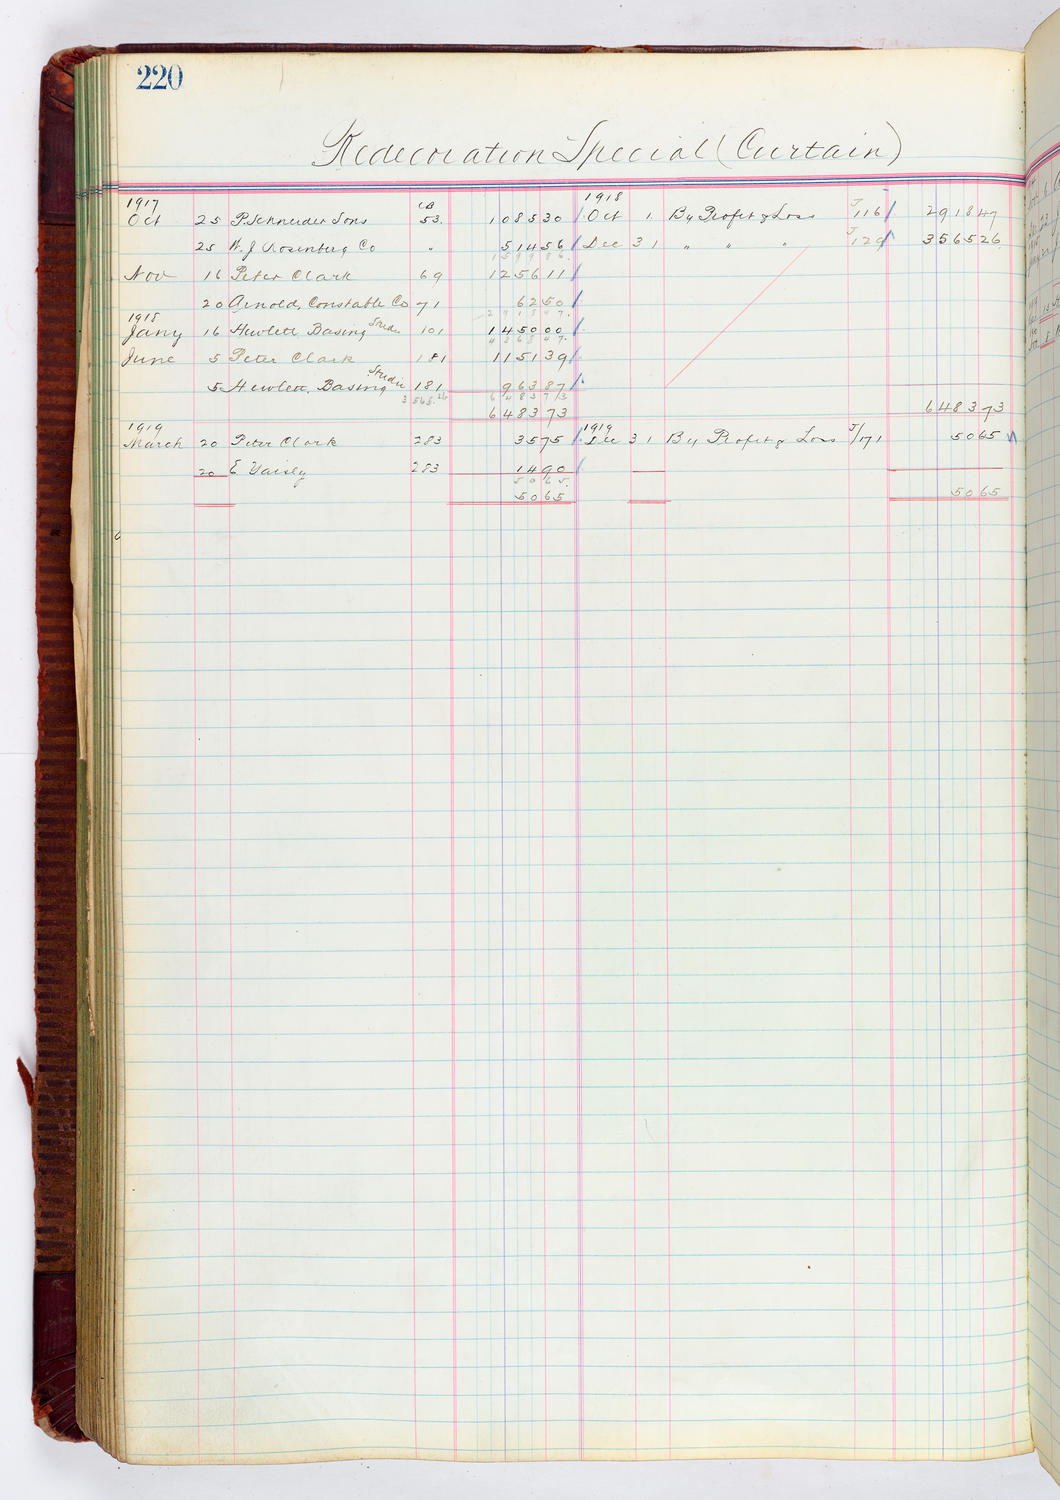 220
Redecoration Special (Curtain)
1917 CB 1918
Oct 25 P. Schneider Sons 53. 1085 30 Oct 1 By Profit & Loss J/116 2918 47
25 W. J. Rosenberg Co " 514 56 Dec 31 " " " J/129 3565 26
1599 86.
Nov 16 Peter Clark 69 1256 11
20 Arnold, Constable Co 71 62 50
2918 47.
1918
Jany 16 Hewlett Basing Studio 101 1450 00
4368 47.
June 5 Peter Clark 181 1151 39
5 Hewlett, Basing Studio 181 963 87
3565.26 6483 73
6483 73 6483 73
1919 1919
March 20 Peter Clark 283 35 75 Dec 31 By Profit & Loss J/171 50 65
20 E 283 14 90
50 65.
50 65 50 65